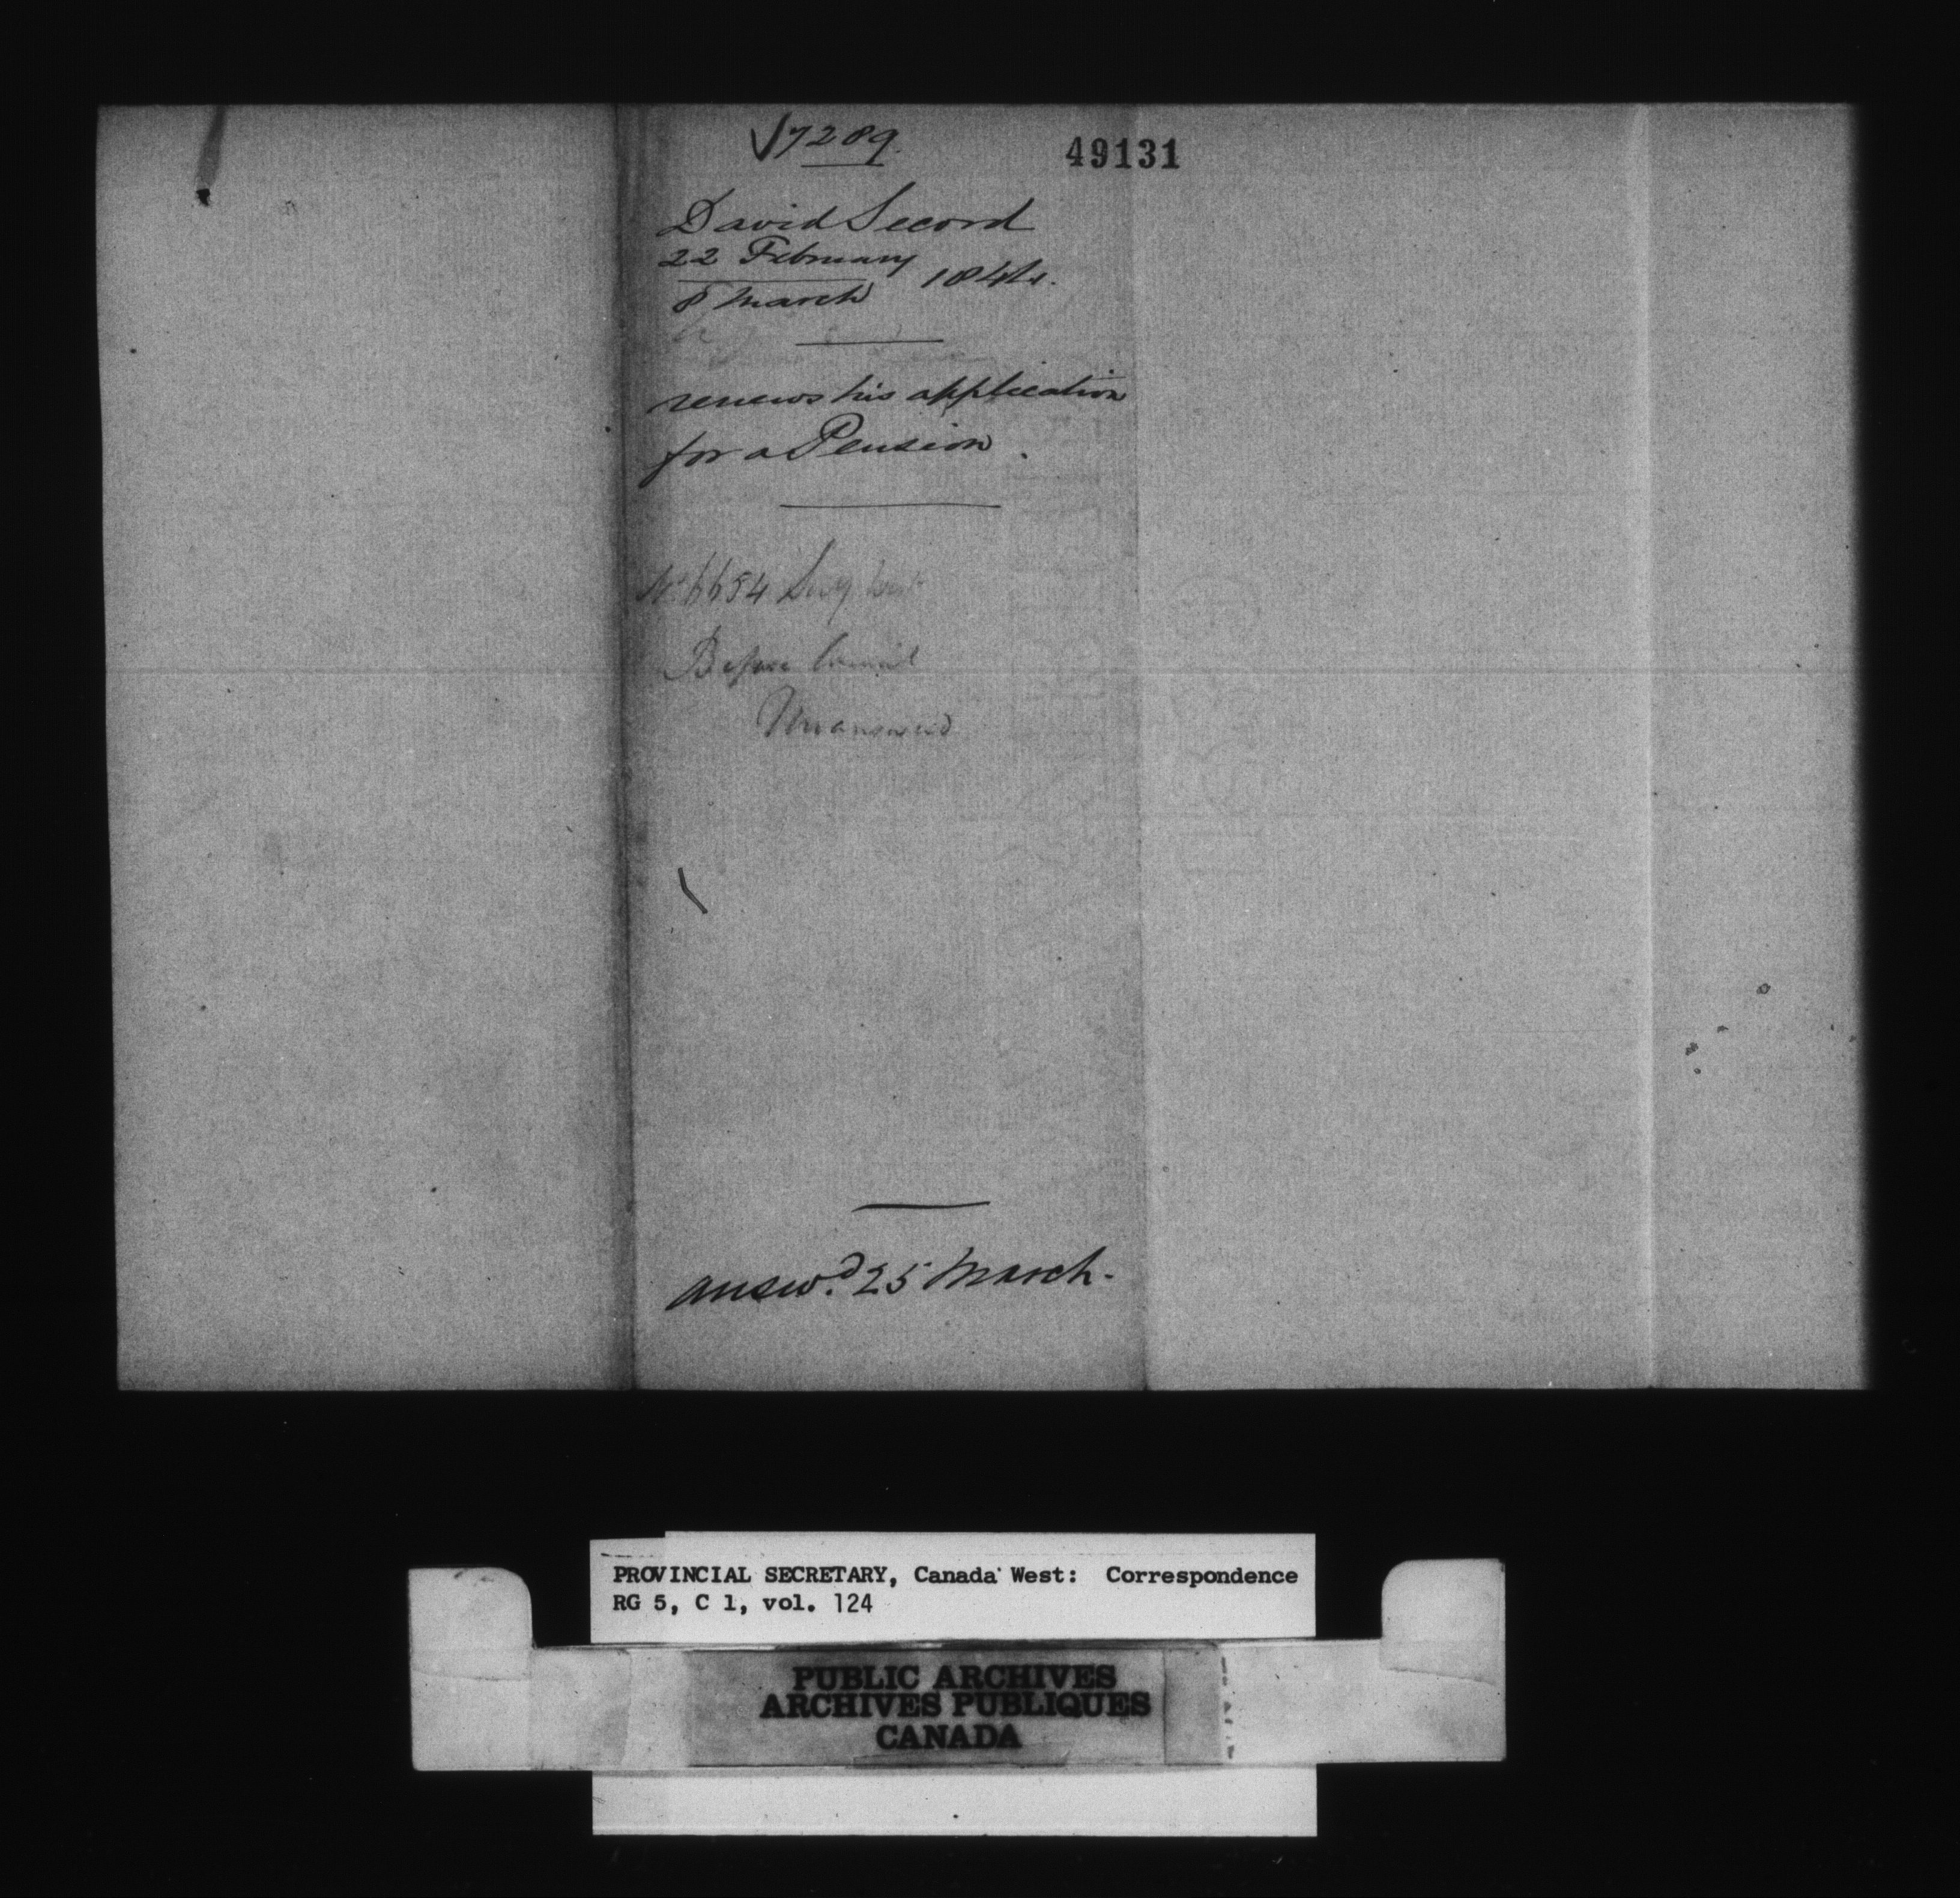 7289.
49131
David Secord
22 February
8 March 1844.
renews his application
for a Pension.
No 6654
Before Council
Unanswered
answd. 25 March.
PROVINCIAL SECRETARY, Canada West: Correspondence
RG 5, C 1, vol. 124
PUBLIC ARCHIVES
ARCHIVES PUBLIQUES
CANADA